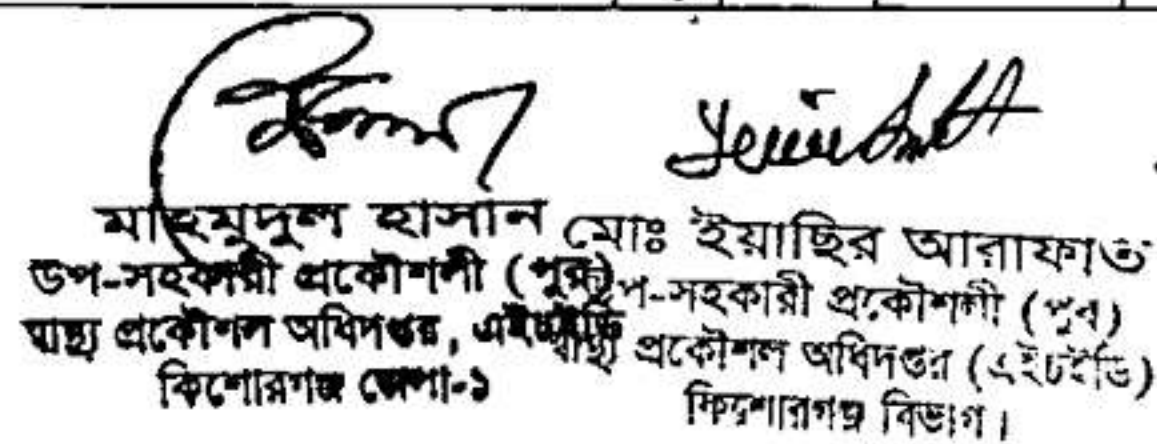 মাহমুদুল হাসান
উপ-সহকারী প্রকৌশলী (পুর)
স্বাস্থ্য প্রকৌশল অধিদপ্তর, এইচইডি
কিশোরগঞ্জ জেলা-১
মোঃ ইয়াছির আরাফাত
উপ-সহকারী প্রকৌশলী (পুর)
স্বাস্থ্য প্রকৌশল অধিদপ্তর (এইচইডি)
কিশোরগঞ্জ বিভাগ।